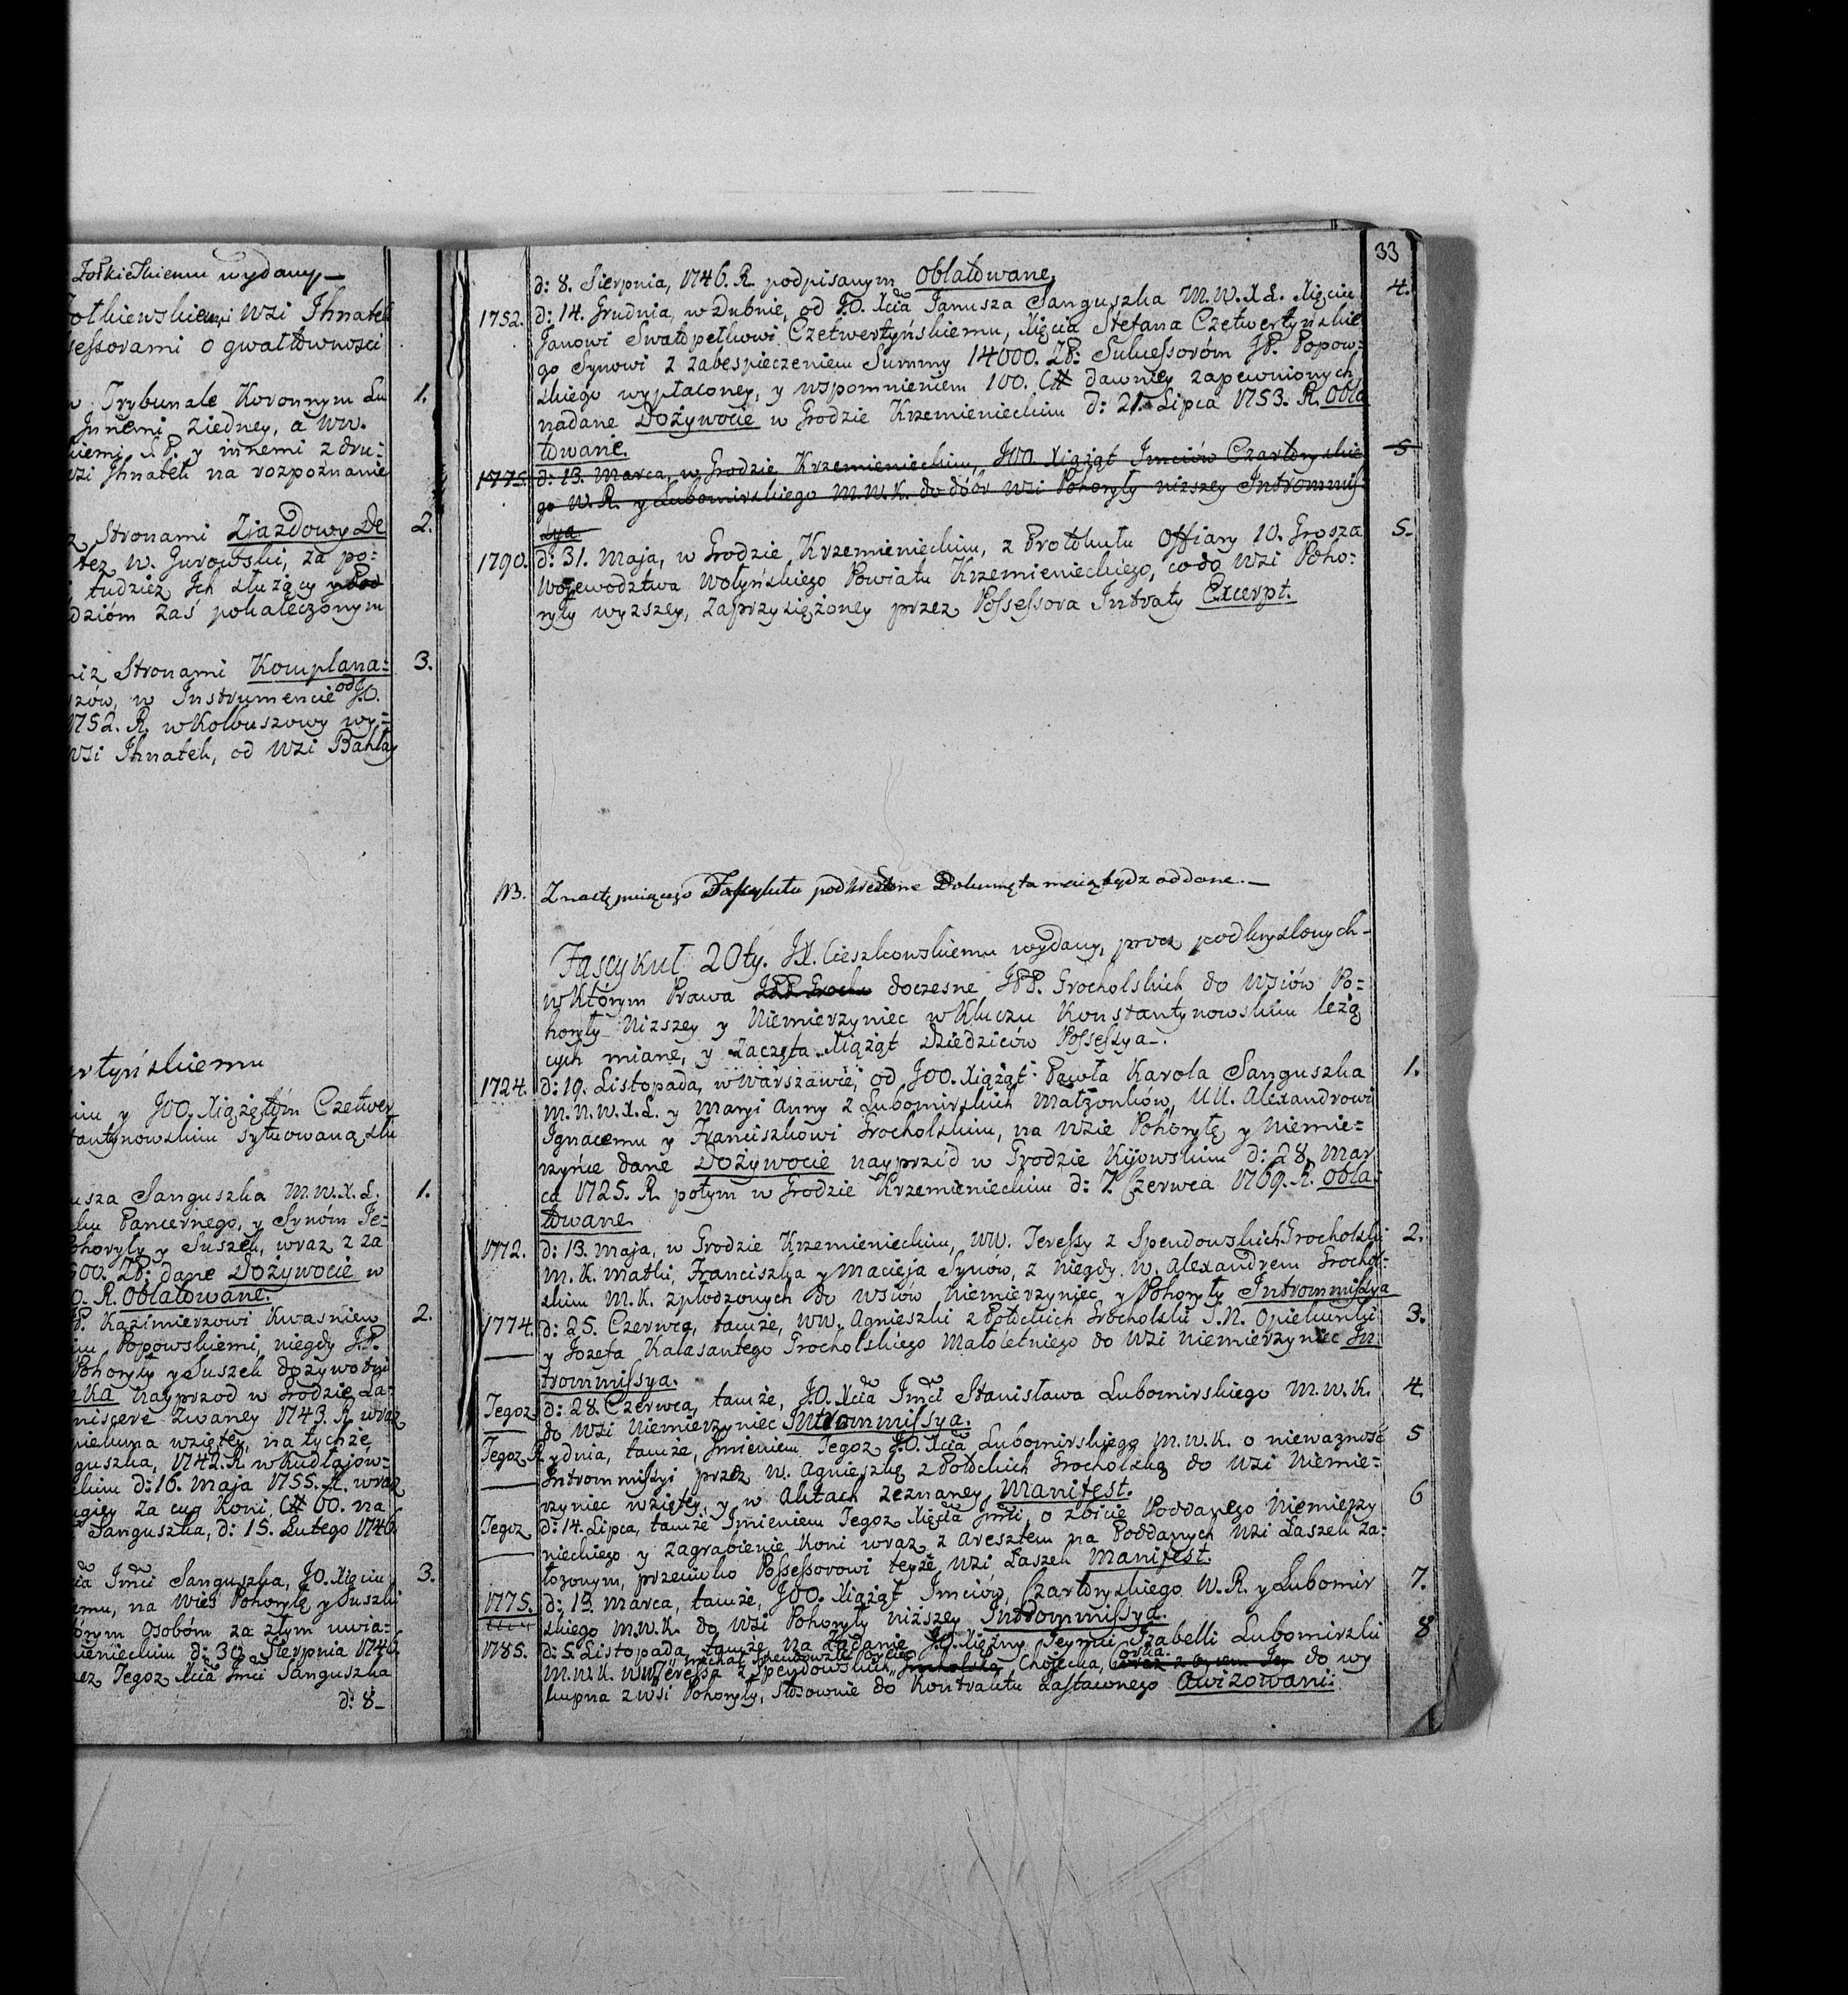 Żołkiewskiemu wydany —
Żołkiewskiemi Wzi Ihnatek
sessorami o gwałtowności
w Trybunale Koronnym Lu 1.
Innemi ziedney, a WW.
kiemi S.P. y innemi z dru:
wzi Ihnatek na rozpoznanie
z Stronami Zjazdowy De 2.
tez W. Gurowski, za po:
, tudziez Jch służący
dzióm zaś pokaleczonym
iz Stronami Komplana: 3.
szów, w Instrumencie od J.O.
1752. R. w Kolbuszowy wy:
wsi Ihnatek, od Wzi Bahlay
rtyńskiemu
iu y JOO. Xiążętóm Czetwer
tantynowskim sytuowaną słu
usza Sanguszka M.W.X.L. 1.
ku Pancernego, y Synóm Je:
ohoryły y Suszek, wraz z za
500. ZP: dane Dożywocie w
0. R. Oblatowane.
P. Kazimierzowi Kwasniew 2.
iu Popowskiemi, niegdy J.P.
Pohoryły y Suszek dożywotni
zka nayprzod w Grodzie Ła:
niscere zwaney 1743. R wraz
piekuna wziętey, na tychże
guszka, 1742. R w Kudłajow:
kim d: 16. Maja 1755. R. wraz
ugiey za cug Koni C# 60. na
Sanguszka, d: 15. Lutego 1746.
cia Imci Sanguszka, J.O. Xięciu 3.
emu, na Wieś Pohoryłę y Suszki
orym Osobóm za złym uwia:
mienieckim d: 30 Sierpnia 1746.
ez Tegoz Xcia Imci Sanguszka
d: 8_
33
d: 8. Sierpnia, 1746. R. podpisanym Oblatowane,
1752. d: 14. Grudnia, w Dubnie, od J.O. Xcia Janusza Sanguszka M.W.X.L. Xięciu 4.
Janowi Swatopełkowi Czetwertyńskiemu, Xięcia Stefana Czetwertyńskie
go Synowi z zabespieczeniem Summy 14000. ZP: Sukcessoróm JP. Popow:
skiego wypłaconey, y wspomnieniem 100. C# dawniey zapewnionych,
nadane Dożywocie w Grodzie Krzemienieckim d: 21. Lipca 1753. R. Obla
towane.
1775. d: 13. Marca, w Grodzie Krzemienieckim, JOO. Xiążąt Imciów Czartoryskie 5
go W.R. y Lubomirskiego M.W.K. do dóbr Wzi Pohoryły niższey Intrommis:
sya
1790. d: 31. Maja, w Grodzie Krzemienieckim, z Protokułu Offiary 10. Grosza 5.
Wojewodztwa Wołyńskiego Powiatu Krzemienieckiego, co do Wzi Poho:
ryły wyzszey, zaprzysiężoney przez Possessora Intraty Excerpt.
NB. Z następuiącego Fascykułu podkreślone Dokumęta maią bydz oddane. —
Fascykuł 20ty. JX. Cieszkowskiemu wydany, procz podkryslonych —
w Którym Prawa JPP Grocho doczesne JPP. Grocholskich do Wsiów Po:
horyły Nizszey y Niemierzyniec w Kluczu Konstantynowskim leżą
cych miane, y zaczęta Xiążąt Dziedziców Possessya.
1724. d: 19. Listopada, w Warszawie, od JOO. Xiążąt Pawła Karola Sanguszka 1.
M.N.W.X.L. y Maryi Anny z Lubomirskich Małżonków, UU. Alexandrowi
Ignacemu y Franciszkowi Grocholskim, na Wzie Pohoryłę y Niemie:
rzyńce dane Dożywocie nayprzód w Grodzie Kijowskim d: 28. Mar
ca 1725. R. potym w Grodzie Krzemienieckim d: 7. Czerwca 1769. R. Obla:
towane.
1772. d: 13. Maja, w Grodzie Krzemienieckim, WW. Teressy z Spendowskich Grocholski 2.
M.K. Matki, Franciszka y Macieja Synów, z niegdy W. Alexandrem Grochol:
skim M.K. zpłodzonych do Wsiów Niemierzyniec y Pohoryły Intrommissya
1774. d: 25. Czerwca, tamże, WW. Agnieszki z Potockich Grocholski S.N. Opiekunki 3.
y Jozefa Kalasantego Grocholskiego Małoletniego do Wzi Niemierzyniec In
trommissya.
Tegoz d: 28. Czerwca, tamże, J.O. Xcia Imci Stanisława Lubomirskiego M.W.K. 4.
do Wzi Niemierzyniec Intrommissya.
Tegoz R. y dnia, tamże, Imieniem Tegoz J.O. Xcia Lubomirskiego M.W.K. o nieważność 5
Intrommissyi przez W. Agnieszkę z Potockich Grocholską do Wzi Niemie:
rzyniec wziętey, y w Aktach zeznaney Manifest.
Tegoz d: 14. Lipca, tamże Imieniem Tegoz Xięcia Imci, o zbicie Poddanego Niemierzy 6
nieckiego y zagrabienie Koni wraz z Aresztem na Poddanych Wzi Łaszek za:
łożonym, przeciwko Possessorowi teyże Wzi Łaszek Manifest.
1775. d: 13. Marca, tamże, JOO. Xiążąt Imciów, Czartoryskiego W.R. y Lubomir 7.
skiego M.W.K. do Wzi Pohoryły niższey Intrommissya.
1785. d: 5. Listopada, tamże na żądanie J.O. Xiężny Jeymci Izabelli Lubomirski 8
Michał Spendowski Oyciec Corka.
M.W.K. WW. Teressa z Spendowskich Grocholska Chojecka, wraz z Oycem Jey do wy
kupna z Wsi Pohoryły, stosownie do Kontraktu Zastawnego Awizowani: